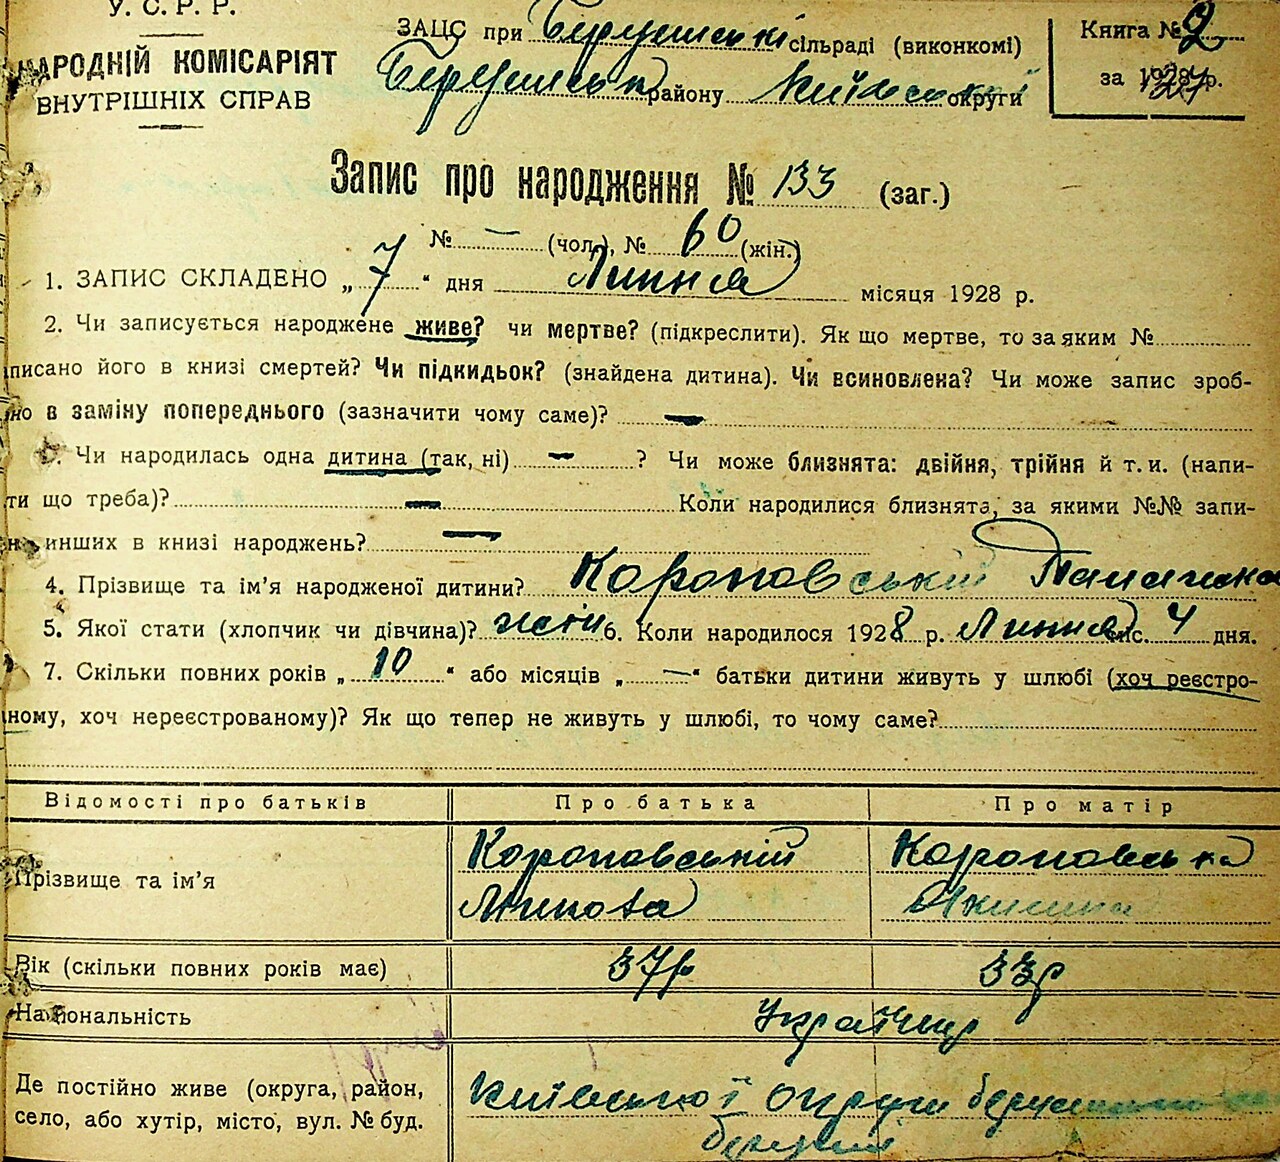 У. С. Р. Р.
НАРОДНІЙ КОМІСАРІЯТ
ВНУТРІШНІХ СПРАВ
ЗАЦС при сільраді (виконкомі)
району Київської округи
Книга № 2
за 1927 р.
Запис про народження № 133 (заг.)
№ — (чол.), № 60 (жін.)
1. ЗАПИС СКЛАДЕНО „7“ дня Липня місяця 1928 р.
2. Чи записується народжене живе? чи мертве? (підкреслити). Як що мертве, то за яким №
писано його в книзі смертей? Чи підкидьок? (знайдена дитина). Чи всиновлена? Чи може запис зроб-
но в заміну попереднього (зазначити чому саме)? —
3. Чи народилась одна дитина (так, ні) — ? Чи може близнята: двійня, трійня й т. и. (напи-
ти що треба)? — Коли народилися близнята, за якими №№ запи-
инших в книзі народжень? —
4. Прізвище та ім’я народженої дитини? Короповській
5. Якої стати (хлопчик чи дівчина)? 6. Коли народилося 1928 р. Липня міс. 4 дня.
7. Скільки повних років „10“ або місяців „—“ батьки дитини живуть у шлюбі (хоч реєстро-
ному, хоч нереєстрованому)? Як що тепер не живуть у шлюбі, то чому саме?
Відомості про батьків Про батька Про матір
Прізвище та ім’я Короповській Короповська
Вік (скільки повних років має) 37р 33р
Національність Українці
Де постійно живе (округа, район, Київської округи
село, або хутір, місто, вул. № буд.